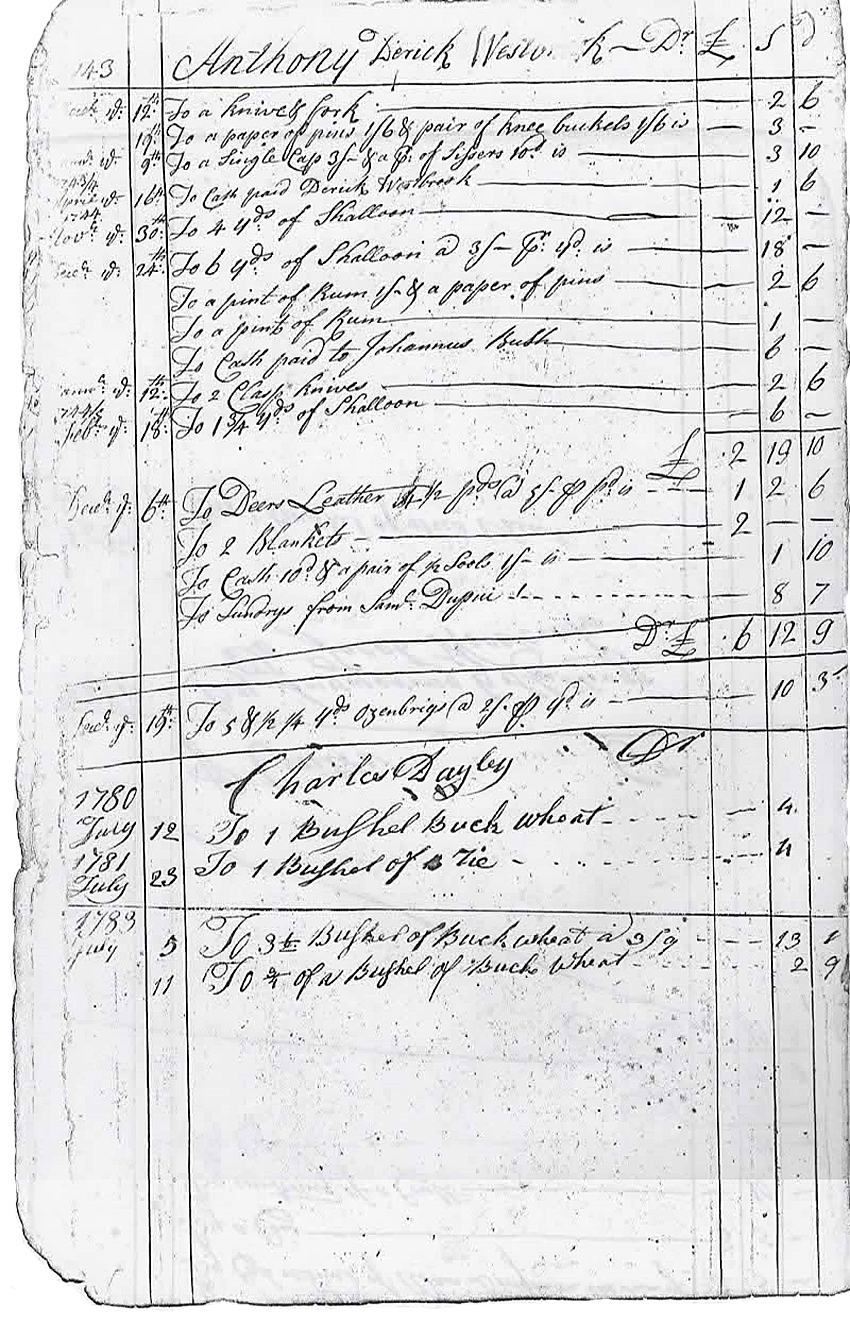 143 Anthony Derick Westbrook — Dr £ S d
Decr ye 12th To a knive & fork — 2 6
19th To a paper of pins 1/6 & pair of knee buckels 1/6 is — 3 –
ye 9th To a Single Cap 3/– & a pr of Sissers 10d is — 3 10
1743/4
April ye 16th To Cash paid Derick Westbrook — 1 6
1744
Novr ye 30th To 4 yds of Shalloon — 12 —
Decr ye 24th To 6 yds of Shalloon a 3/– pr yd is — 18 —
To a pint of Rum 1/– & a paper of pins — 2 6
To a pint of Rum — 1 —
To Cash paid to Johannus Bush — 6 —
ye 12th To 2 Clasp knives — 2 6
1744/5
Febr ye 18th To 1 3/4 yds of Shalloon — 6 —
£ 2 19 10
Decr ye 6th To Deers Leather 4 1/2 pds @ 5/– pr pd is — 1 2 6
To 2 Blankets — 2 — —
To Cash 10d & a pair of Sools 1/– is — 1 10
To Sundrys from Saml Dupui — 8 7
Dr £ 6 12 9
Decr ye 19th To 5 & 1/2 1/4 yds Ozenbrigs @ 2/– pr yd is — 10 3
Charles Dayley Dr
1780
July 12 To 1 Bushel Buck wheat — 4
1781
July 23 To 1 Bushel of Rie — 4
1783
July 5 To 3 1/2 Bushel of Buck wheat a 3/9 — 13 1
11 To 3/4 of a Bushel of Buck wheat — 2 9